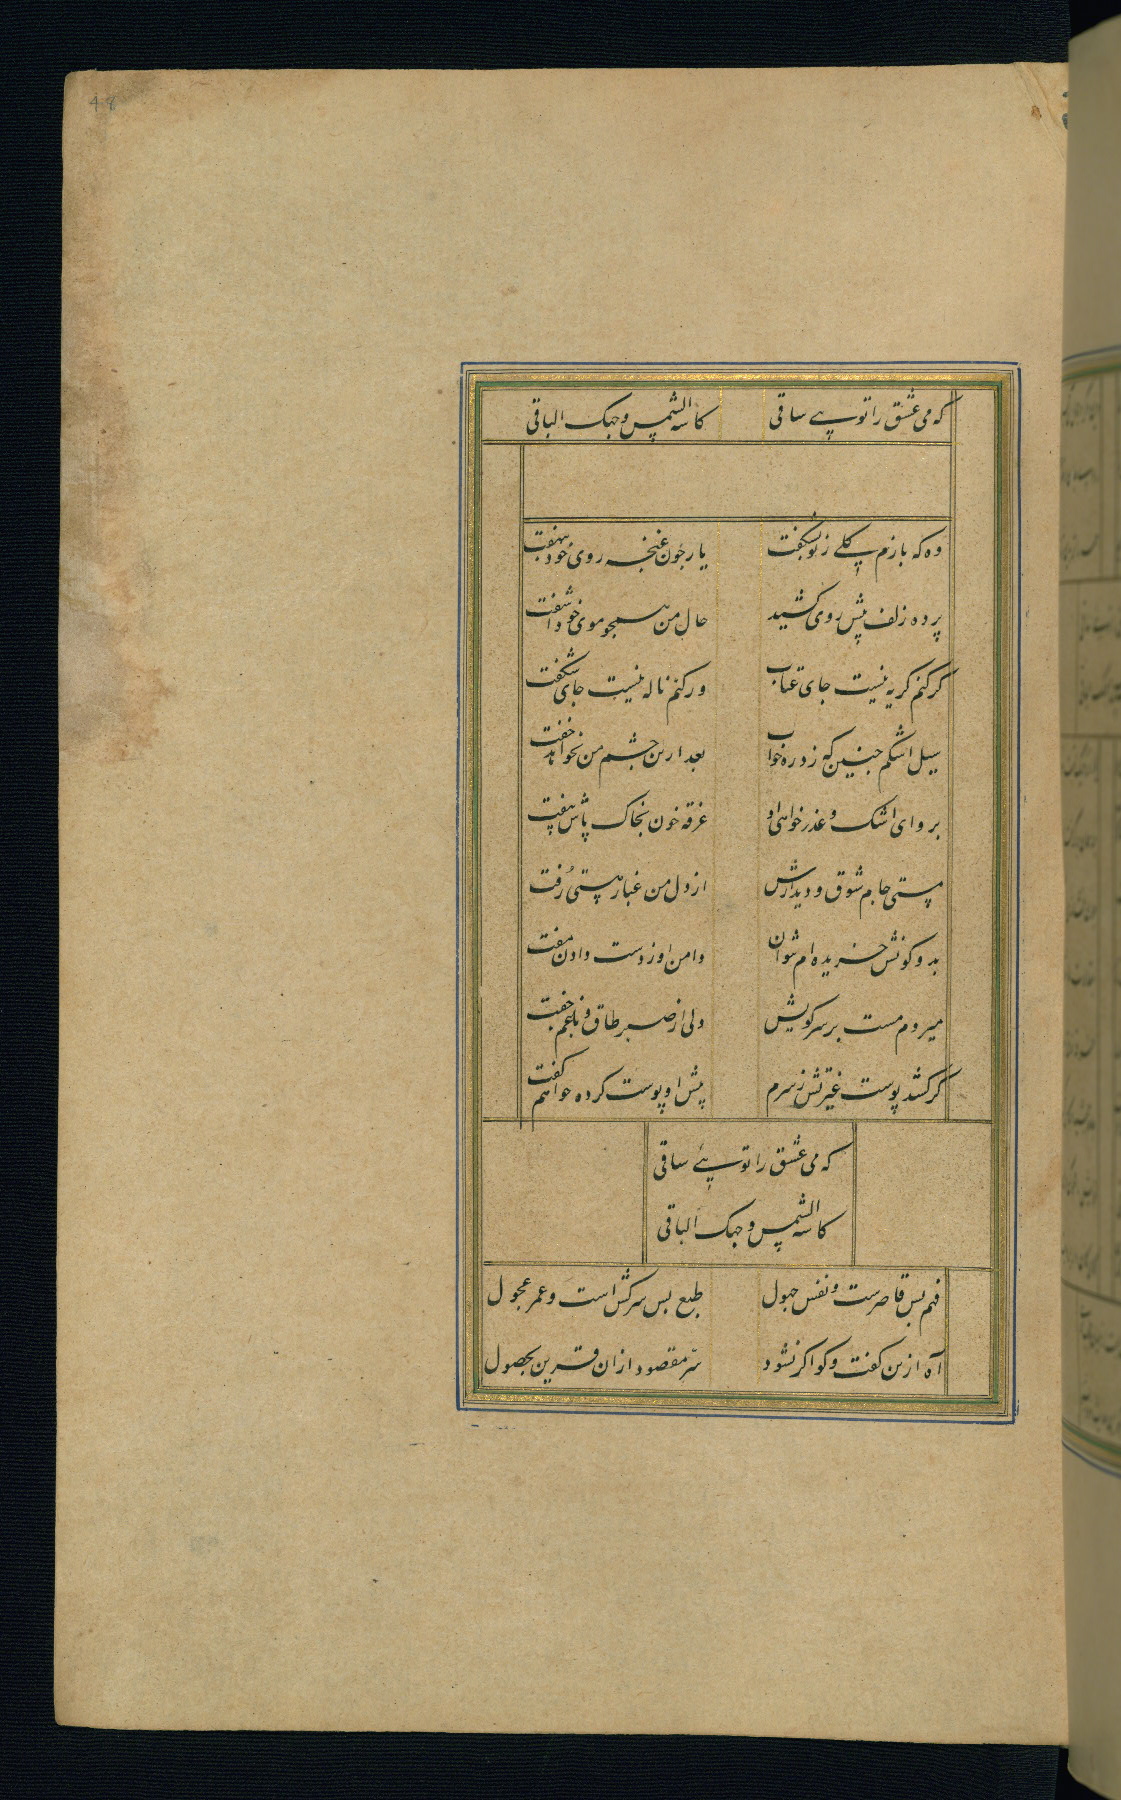 48
که می عشق را توپے ساقی کاسه الشمس وجهک الباقی
وه که بازم کلے ز نو بشکفت یار جون غنچه روی خود بنهفت
پرده زلف پیش روی کشید حال من همجو موی خود اشفت
کر کنم کریه نیست جای عتاب ور کنم ناله نیست جای شکفت
سیل اشکم جنین که زد ره خواب بعد ازین جشم من نخواهد خفت
برو ای اشک و عذر خواهی او غرقه خون بخاک پاش بیفت
مستی جام شوق و دیدارش از دل من غبار هستی رُفت
بدو کونش خریده ام نتوان دامن او ز دست دادن مفت
میروم مست بر سر کویش دلی از صبر طاق و با غم جفت
کر کشد پوست غیرتش ز سرم پیش او پوست کرده خواهم کفت
که می عشق را توپئے ساقی
کاسه الشمس وجهک الباقی
فهم بس قاصرست و نفس جهول طبع بس سرکش است و عمر عجول
آه ازین کفت و کو اکر نشود سّر مقصود ازان قرین بحصول